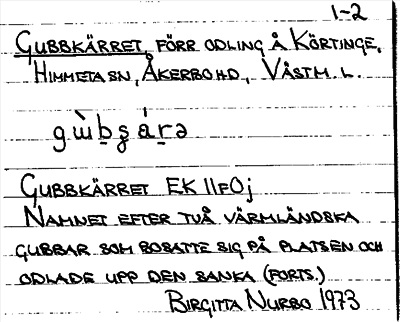 1-2
GUBBKÄRRET, FÖRR ODLING Å KÖRTINGE,
HIMMETA SN, ÅKERBO HD, VÄSTM. L.
GUBBKÄRRET EK 11F0j
NAMNET EFTER TVÅ VÄRMLÄNDSKA
GUBBAR SOM BOSATTE SIG PÅ PLATSEN OCH
ODLADE UPP DEN SANKA (FORTS.)
BIRGITTA NURBO 1973